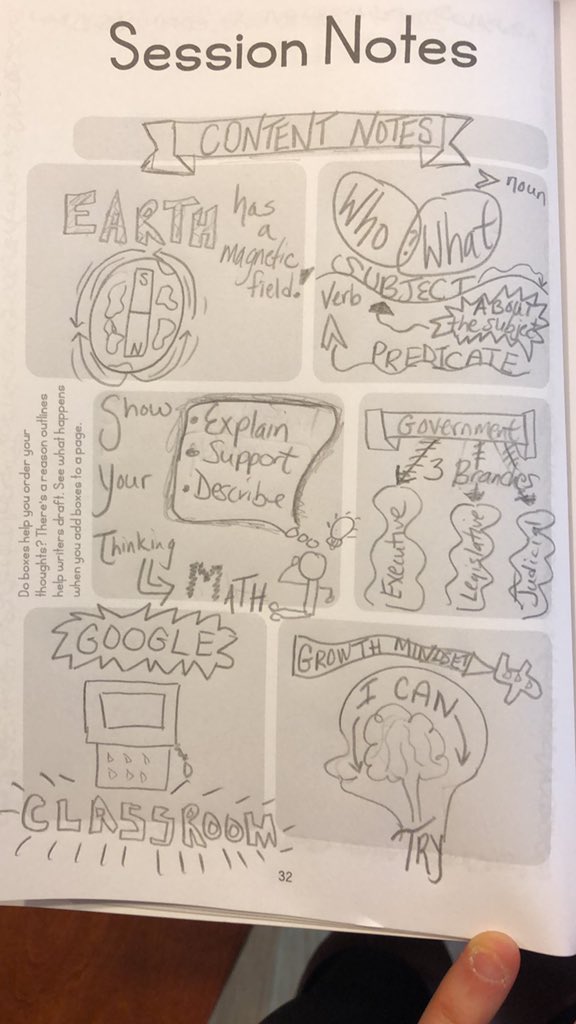 Session Notes
CONTENT NOTES
EARTH
has
a
magnetic
field.
S
N
Who
?
What
noun
SUBJECT
Verb
ABOUT
the subject
PREDICATE
Do boxes help you order your
thoughts? There's a reason outlines
help writers draft. See what happens
when you add boxes to a page.
Show
Your
Thinking
• Explain
• Support
• Describe
MATH
Government
3 Branches
Executive
Legislative
Judicial
GOOGLE
CLASSROOM
GROWTH MINDSET
I CAN
TRY
32